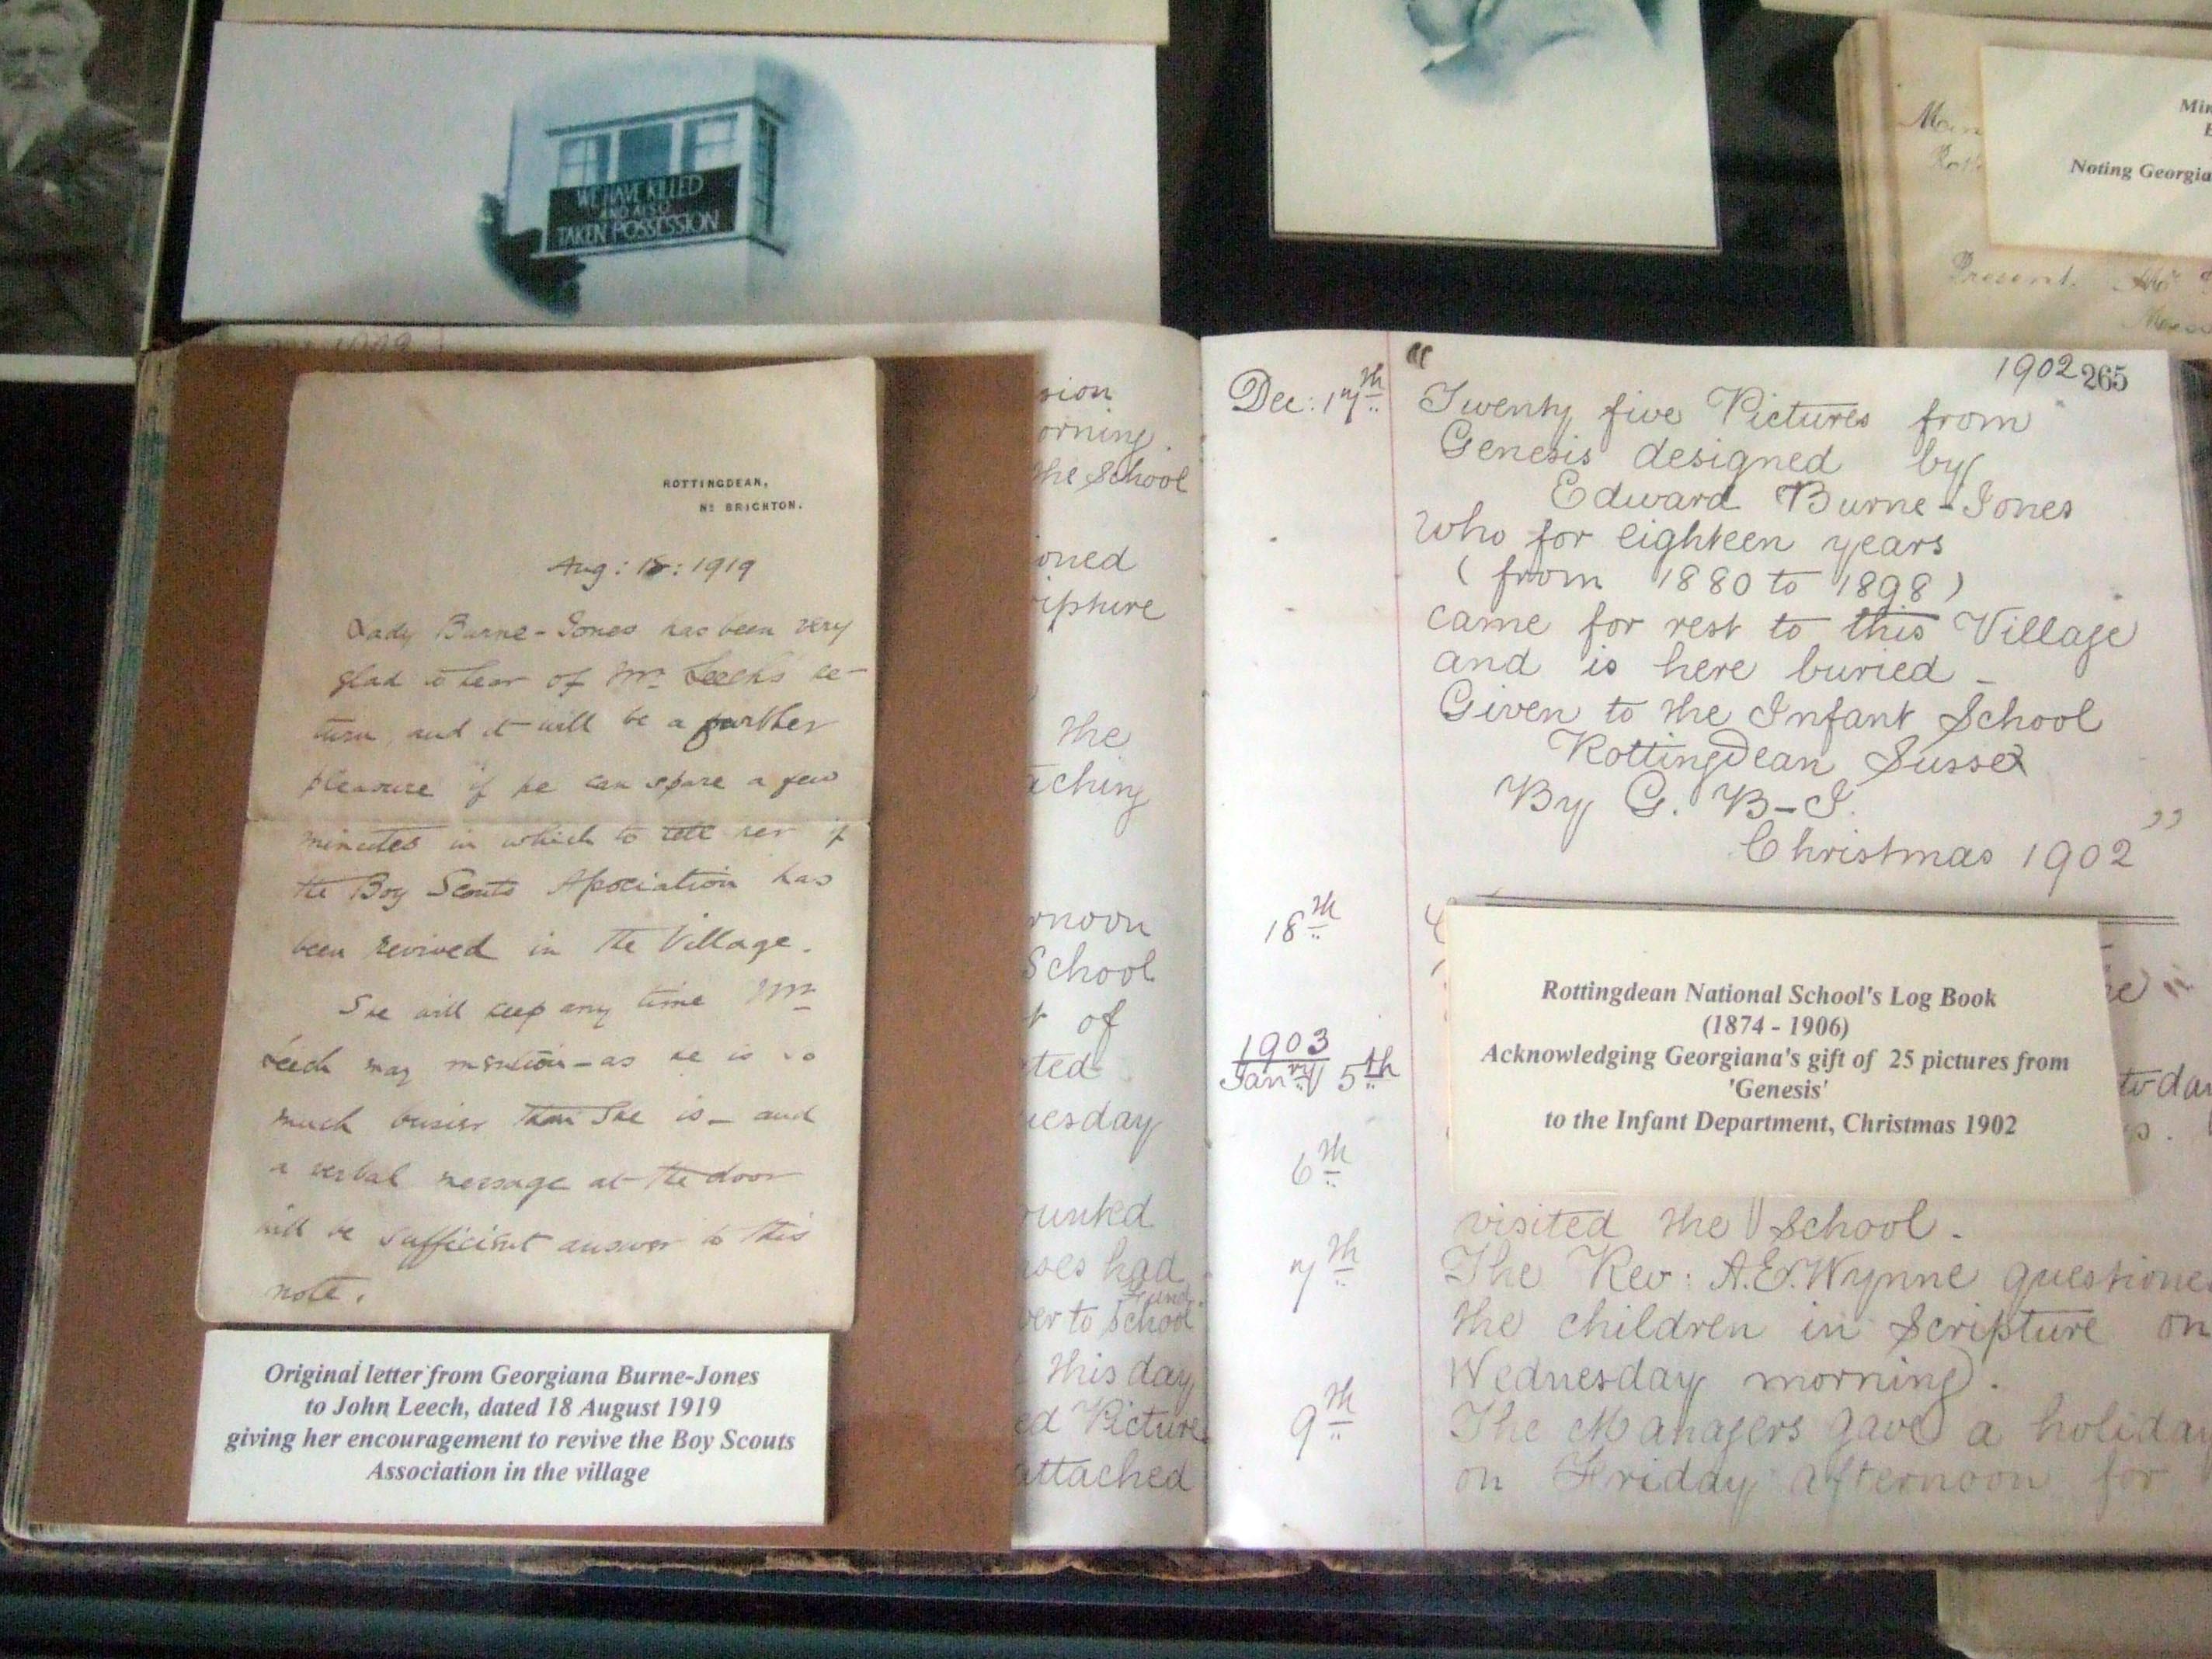 WE HAVE KILLED
AND ALSO
TAKEN POSSESSION
Noting Georgia
Present.
ROTTINGDEAN,
Nr BRIGHTON.
Aug: 18: 1919
Lady Burne-Jones has been very
glad to hear of Mr. Leech's re-
turn, and it will be a further
pleasure if he can spare a few
minutes in which to tell her if
the Boy Scouts Association has
been revived in the Village.
She will keep any time Mr
Leech may mention - as he is so
much busier than she is - and
a verbal message at the door
will be sufficient answer to this
note.
Original letter from Georgiana Burne-Jones
to John Leech, dated 18 August 1919
giving her encouragement to revive the Boy Scouts
Association in the village
sion
orning.
the School
oned
ripture
the
aching
rnoon
School
t of
ted
uesday
had
Fund.
ver to School
this day
ed Picture
attached
1902 265
Dec: 17th "Twenty five Pictures from
Genesis designed by
Edward Burne-Jones
who for eighteen years
(from 1880 to 1898)
came for rest to this Village
and is here buried -
Given to the Infant School
Rottingdean Sussex
By G. B-J.
Christmas 1902"
18th
Rottingdean National School's Log Book
(1874 - 1906)
Acknowledging Georgiana's gift of 25 pictures from
'Genesis'
to the Infant Department, Christmas 1902
1903
Janry 5th
6th
visited the School.
7th The Rev: A.E. Wynne questione
the children in Scripture on
Wednesday morning.
9th The Managers gave a holiday
on Friday afternoon for